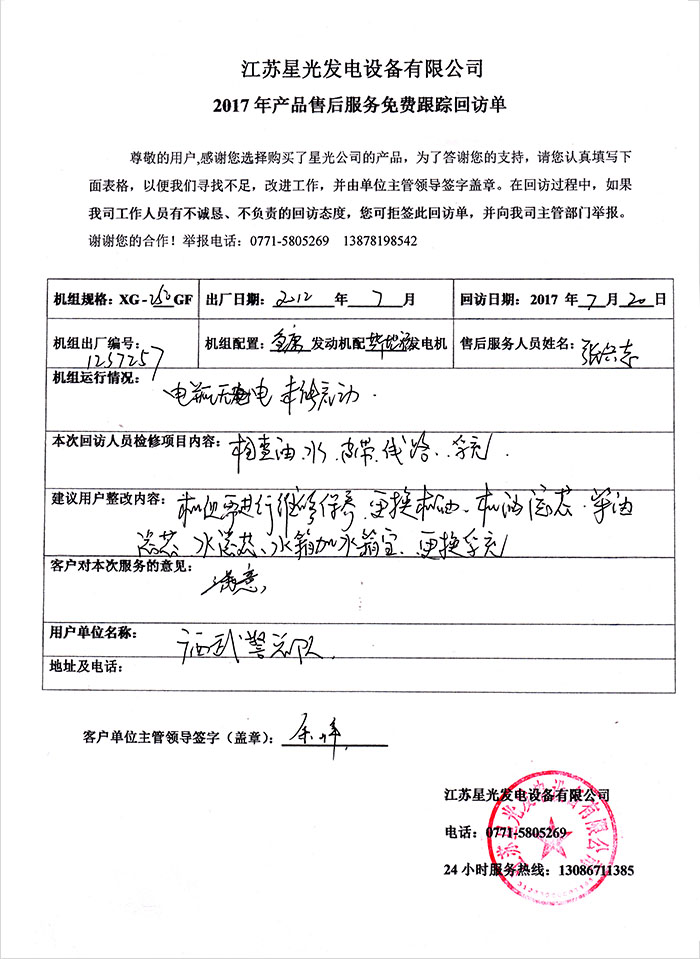 江苏星光发电设备有限公司
2017 年产品售后服务免费跟踪回访单
尊敬的用户,感谢您选择购买了星光公司的产品，为了答谢您的支持，请您认真填写下
面表格，以便我们寻找不足，改进工作，并由单位主管领导签字盖章。在回访过程中，如果
我司工作人员有不诚恳、不负责的回访态度，您可拒签此回访单，并向我司主管部门举报。
谢谢您的合作！举报电话：0771-5805269 13878198542
机组规格：XG-250GF 出厂日期：2012 年 7 月 回访日期：2017 年 7 月 20 日
机组出厂编号： 机组配置：重康 发动机配 斯坦福 发电机 售后服务人员姓名：
1257257
机组运行情况：
电瓶无电 未能启动.
本次回访人员检修项目内容：检查油、水、皮带、线路、浮充.
建议用户整改内容：机组需进行维修保养、更换机油、机油滤芯、柴油
滤芯、水滤芯、水箱加水箱宝、更换浮充
客户对本次服务的意见：
满意,
用户单位名称：
广西武警总队
地址及电话：
客户单位主管领导签字（盖章）：
江苏星光发电设备有限公司
电话：0771-5805269
24 小时服务热线：13086711385
江苏星光发电设备有限公司